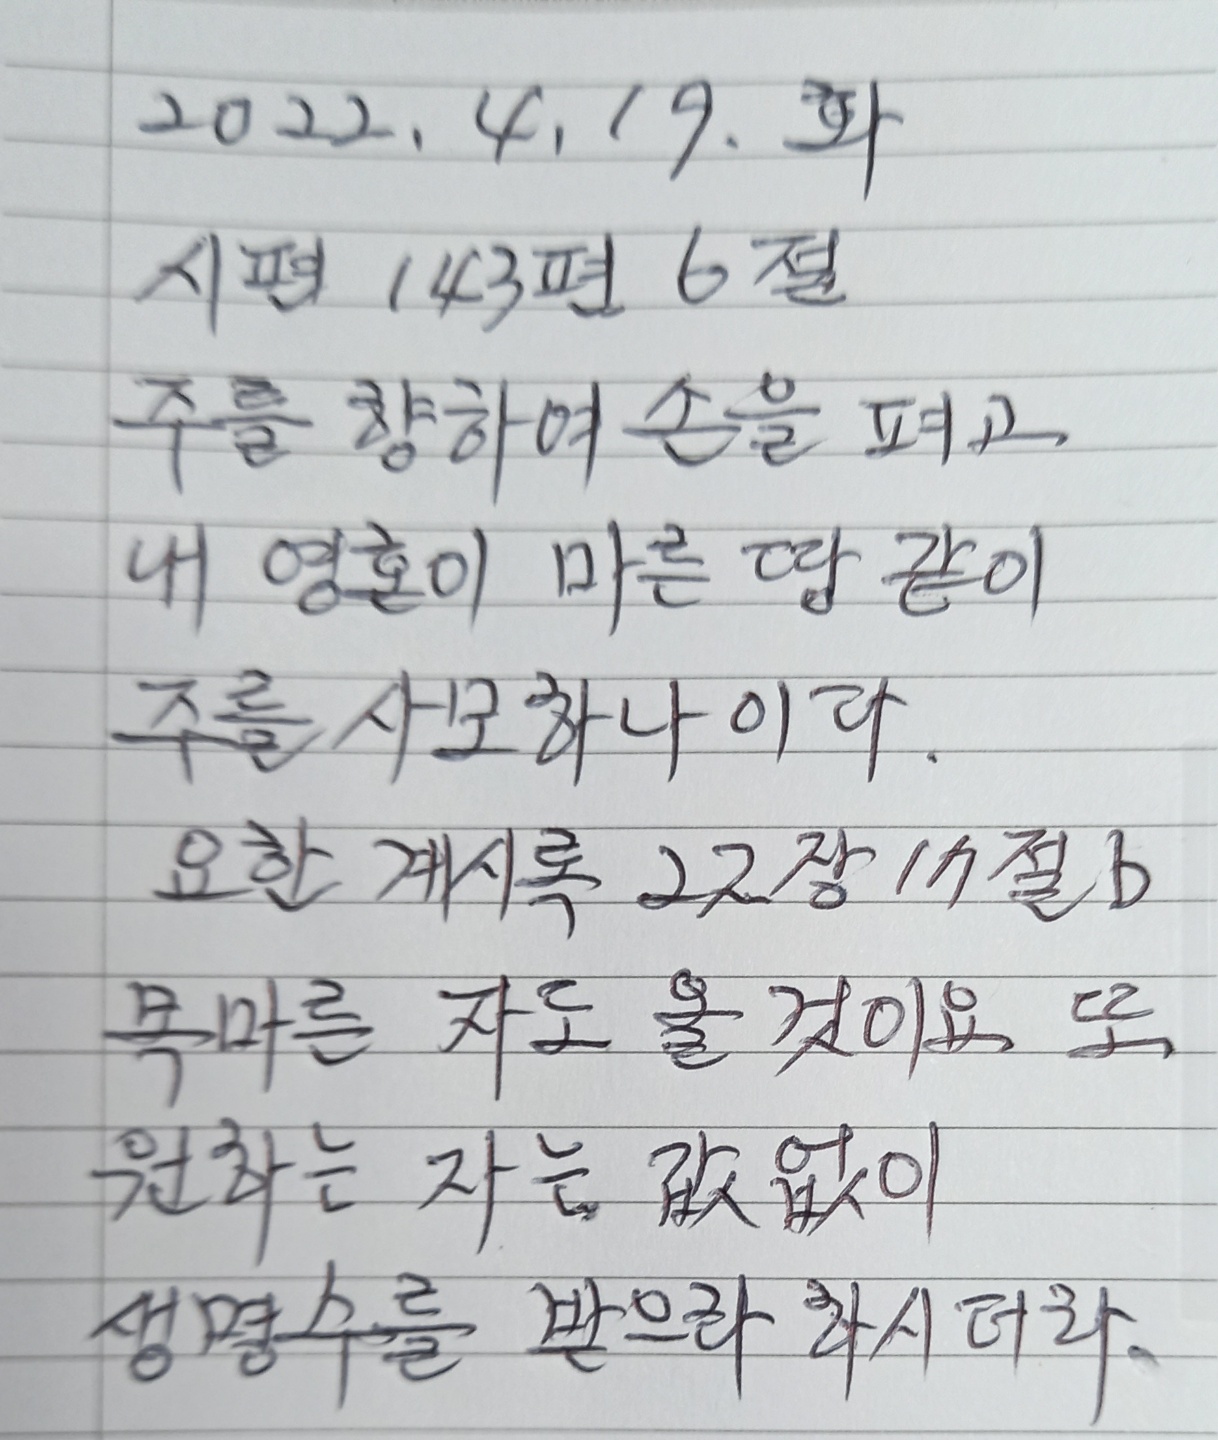 2022. 4. 19. 화
시편 143편 6절
주를 향하여 손을 펴고
내 영혼이 마른 땅 같이
주를 사모하나이다.
요한 계시록 22장 17절 b
목마른 자도 올 것이요 또
원하는 자는 값없이
생명수를 받으라 하시더라.